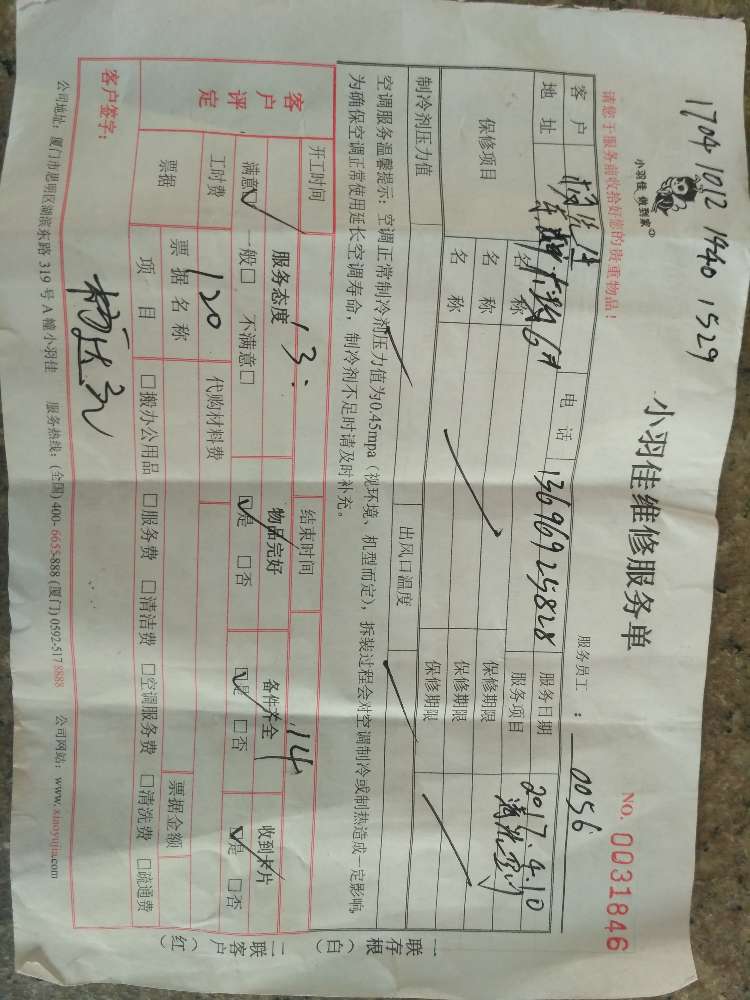 1704 1012 1440 1529
小羽佳 做到家
小羽佳维修服务单
NO. 0031846
请您于服务前收拾好您的贵重物品!
服务员工 : 0056
客户
电话 13696925828
服务日期 2017.4.10
地址
服务项目
保修项目
名称
保修期限
名称
保修期限
名称
保修期限
制冷剂压力值
出风口温度
空调服务温馨提示:空调正常制冷剂压力值为0.45mpa(视环境、机型而定),拆装过程会对空调制冷或制热造成一定影响,
为确保空调正常使用延长空调寿命,制冷剂不足时请及时补充。
开工时间 13:
结束时间 14
客户评定
服务态度
物品完好
备件齐全
收到卡片
满意☑ 一般□ 不满意□
☑是 □否
☑是 □否
☑是 □否
工时费 120
代购材料费
票据
票据名称
票据金额
项目
□搬办公用品 □服务费 □清洁费 □空调服务费 □清洗费 □疏通费
客户签字:
公司地址:厦门市思明区湖滨东路 319 号 A 幢小羽佳 服务热线:(全国) 400-6655-888 (厦门) 0592-517 8888 公司网站:www.xiaoyujia.com
一联存根(白)
二联客户(红)